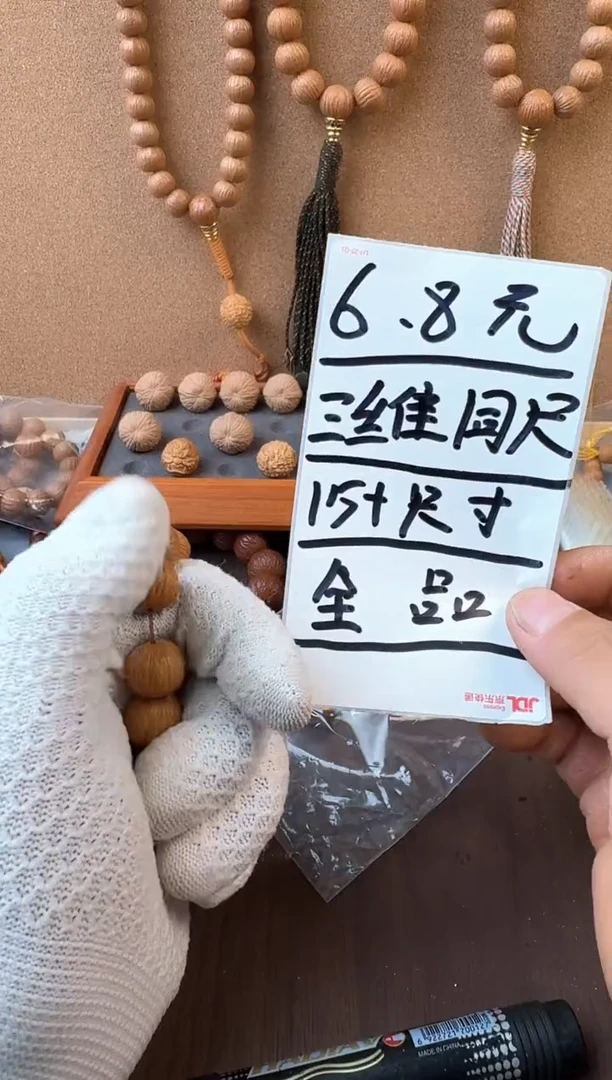 6.8元
三维同尺
15+尺寸
全品
JDL 京东快递
Express
MADE IN CHINA